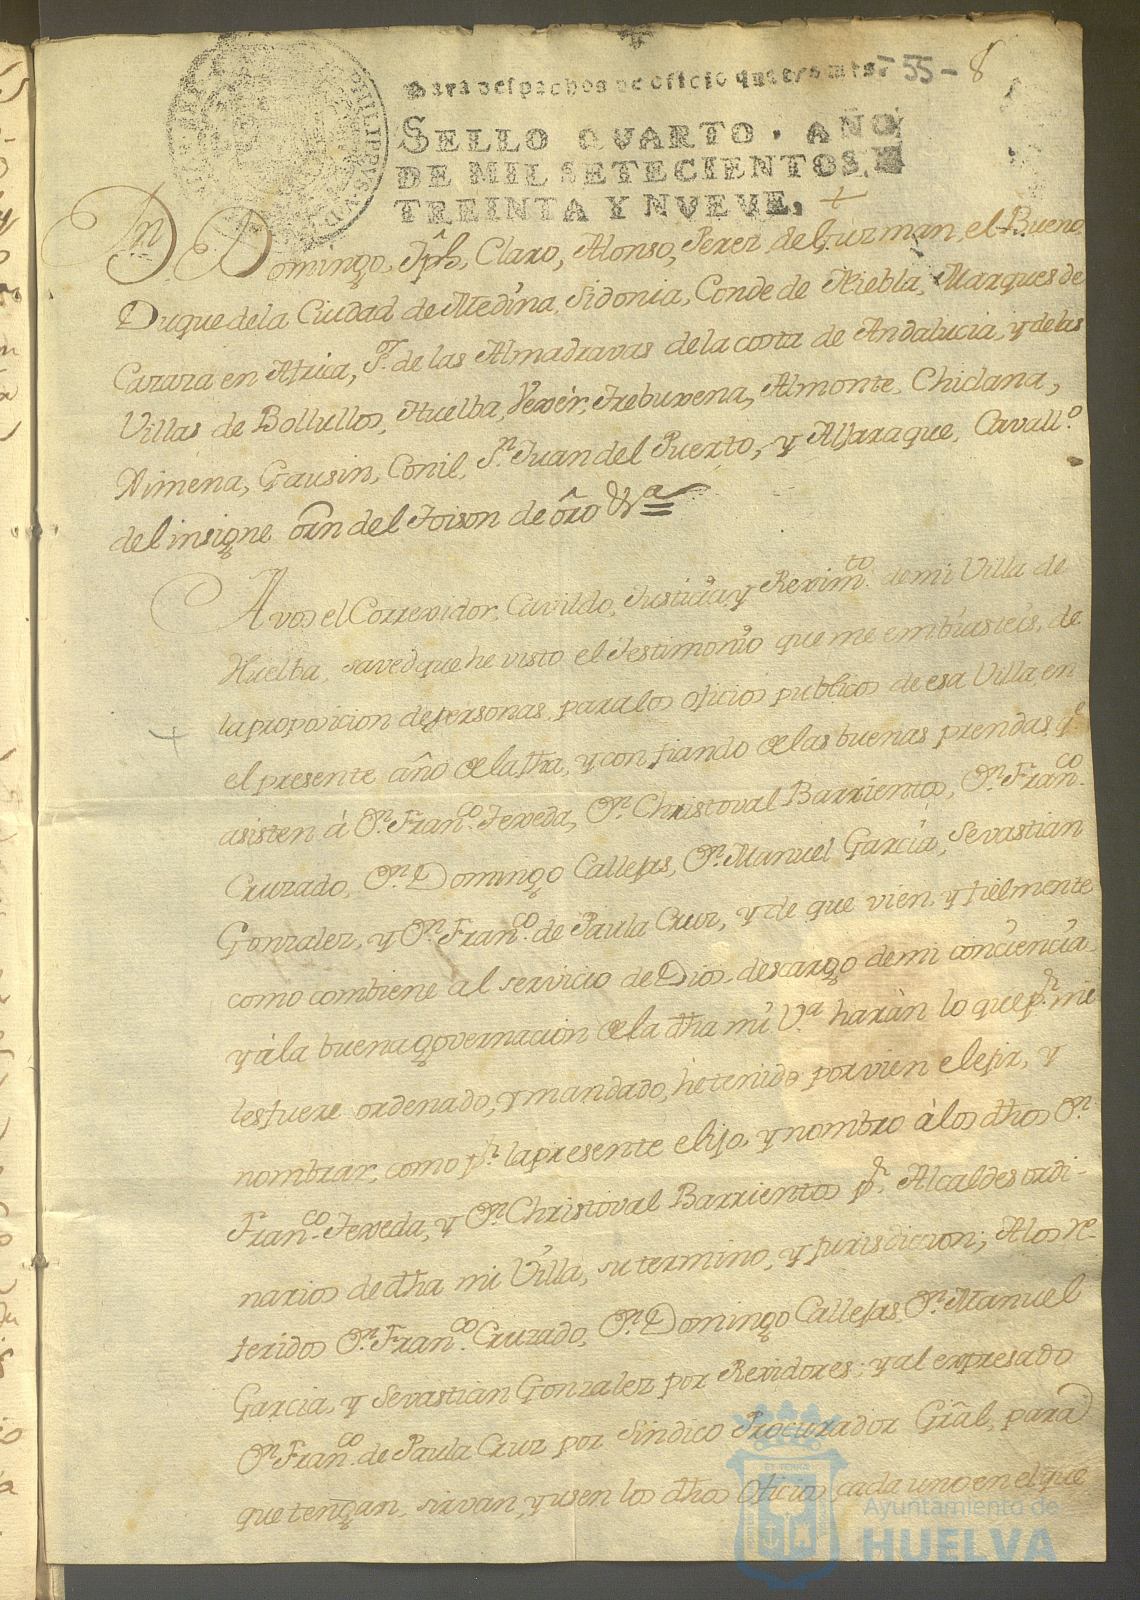 Para despachos de oficio quatro mrs.
- 55 - 8
PHILIPPUS V D
SELLO QVARTO. AÑO
DE MIL SETECIENTOS. Y
TREINTA Y NVEVE.
Dn Domingo, Jph, Claro, Alonso, Perez, de Guzman, el Bueno
Duque dela Ciudad de Medina Sidonia, Conde de Niebla, Marques de
Cazaza en Africa, Sr. de las Almadravas dela costa de Andalucia, y delas
Villas de Bollullos, Huelba, Vexer, Trebuxena, Almonte, Chiclana,
Ximena, Gausin, Conil, Sn. Juan del Puerto, y Aljaraque, Cavallo.
del insigne orn del Toison de oro &a
A vos el Correxidor, Cavildo, Justicia, y Reximto. de mi Villa de
Huelba, saved que he visto el Testimonio que me embiasteis, de
la proposicion de personas, para los oficios publicos de esa Villa, en
el presente año de la fha, y confiando de las buenas prendas qe
asisten à Dn. Franco. Texeda, Dn. Christoval Barrientos, Dn. Franco.
Cruzado, Dn. Domingo Callejas, Dn. Manuel Garcia, Sevastian
Gonzalez, y Dn. Franco. de Paula Cruz, y de que vien, y fielmente
como combiene al servicio de Dios, descargo de mi conciencia
y à la buena governacion de la dha mi Va. haràn lo que pr. mi
les fuere ordenado, y mandado, he tenido por vien elejir, y
nombrar, como pr. la presente elijo, y nombro à los dhos Dn.
Franco. Texeda, y Dn. Christoval Barrientos pr. Alcaldes ordi-
narios de dha mi Villa, su termino, y Jurisdicion; A los re-
feridos Dn. Franco. Cruzado, Dn. Domingo Callejas, Dn. Manuel
Garcia, y Sevastian Gonzalez por Rexidores; y al expresado
Dn. Franco. de Paula Cruz por Sindico Procurador Gral, para
que tengan, sirvan, y usen los dhos Oficios cada uno en el que
Ayuntamiento de
HUELVA